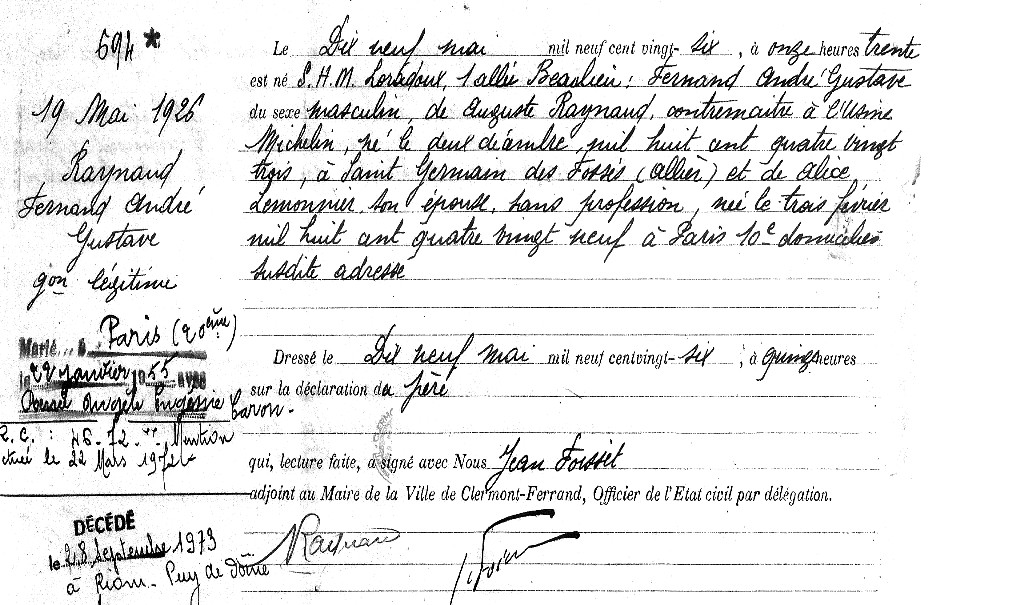 694 *
19 Mai 1926
Raynaud
Fernand André
Gustave
gon légitime
Marié à Paris (20ème)
le 22 janvier 1955 avec
Renée Angèle Eugénie
Caron.
R.C. : 46-72 Mention
le 22 Mars 1972
DÉCÉDÉ
le 28 Septembre 1973
à Riom - Puy de dôme
Le Dix neuf mai mil neuf cent vingt- six, à onze heures trente
est né S.H.M. Loradoux, 1 allée Beaulieu: Fernand André Gustave
du sexe masculin, de Auguste Raynaud, contremaitre à l'Usine
Michelin, né le deux décembre mil huit cent quatre vingt
trois, à Saint Germain des Fossés (Allier) et de Alice
Lemonnier, son épouse, sans profession, née le trois février
mil huit cent quatre vingt neuf à Paris 10e domiciliés
susdite adresse
Dressé le Dix neuf mai mil neuf centvingt- six, à quinze heures
sur la déclaration du père
qui, lecture faite, a signé avec Nous Jean Foisset
adjoint au Maire de la Ville de Clermont-Ferrand, Officier de l'Etat civil par délégation.
Raynaud